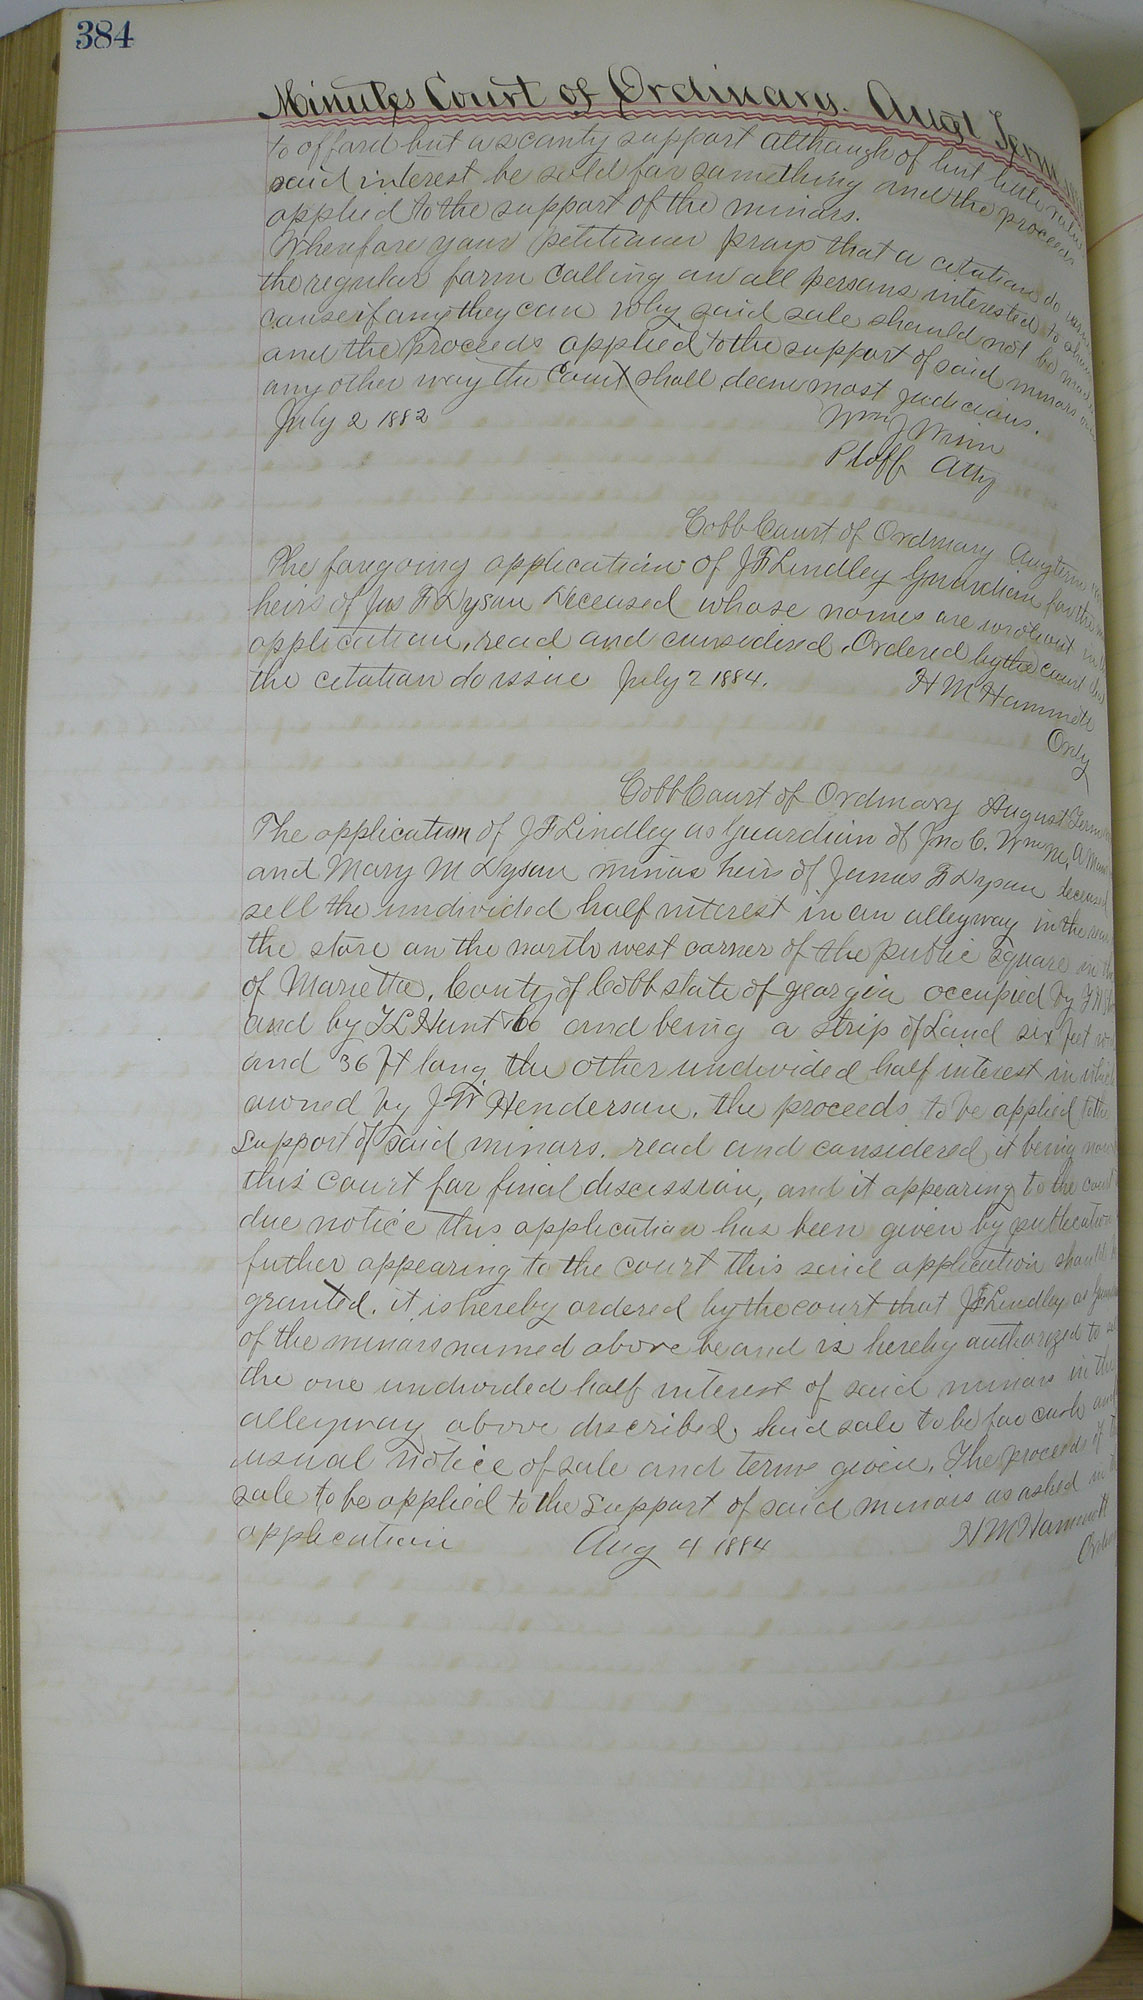 384
Minutes Court of Ordinary. Augt Term
to afford but a scanty support although of but little value
said interest be sold for something and the proceeds
applied to the support of the minors.
Wherefore your petitioner prays that a citation do
the regular form calling on all persons interested to show
cause if any they can why said sale should not be made
and the proceeds applied to the support of said minors or in
any other way the Court shall deem most judicious.
July 2 1882
Wm J Winn
Ptoff Atty
Cobb Court of Ordinary Aug term
The foregoing application of J F Lindley Guardian for the
heirs of Jas F Dyson Deceased whose names are
application, read and considered. Ordered by the court that
the citation do issue July 2 1884.
H M Hammett
Ordy
Cobb Court of Ordinary August Term
The application of J F Lindley as Guardian of Jno C. Wm M, A
and Mary M Dyson minor heirs of James F Dyson deceased
sell the undivided half interest in an alleyway in the rear
the store on the north west corner of the public square in the
of Marietta, County of Cobb state of georgia occupied by
and by T L Hunt & Co and being a strip of Land six feet
and 36 ft long, the other undivided half interest in which
owned by J W Henderson. the proceeds to be applied to the
support of said minors. read and considered, it being
this court for final discission, and it appearing to the court
due notice this application has been given by publication
futher appearing to the court this said application should
granted. it is hereby ordered by the court that J F Lindley as
of the minors named above be and is hereby authorized to
the one undivided half interest of said minors in the
alleyway above discribed. Said sale to be for cash and
usual notice of sale and terms given. The proceeds of
sale to be applied to the support of said minors as asked in
application Aug 4 1884
H M Hammett